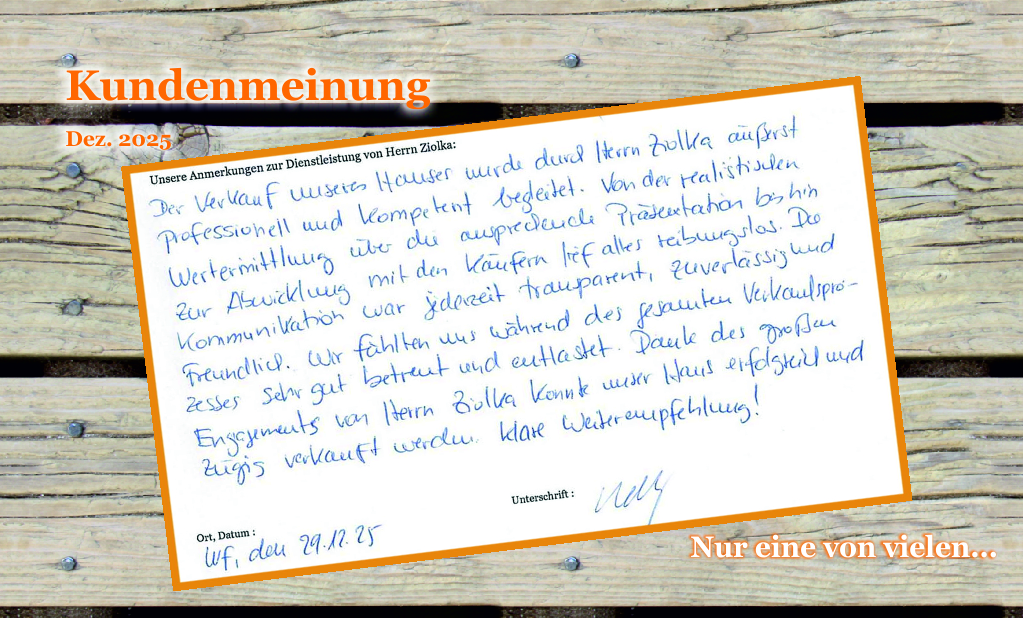 Kundenmeinung
Dez. 2025
Unsere Anmerkungen zur Dienstleistung von Herrn Ziolka:
Der Verkauf unseres Hauses wurde durch Herrn Ziolka äußerst
professionell und kompetent begleitet. Von der realistischen
Wertermittlung über die ansprechende Präsentation bis hin
zur Abwicklung mit den Käufern lief alles reibungslos. Die
Kommunikation war jederzeit transparent, zuverlässig und
freundlich. Wir fühlten uns während des gesamten Verkaufspro-
zesses sehr gut betreut und entlastet. Danke des großen
Engagements von Herrn Ziolka konnte unser Haus erfolgreich und
zügig verkauft werden. Klare Weiterempfehlung!
Unterschrift :
Ort, Datum :
Wf, den 29.12.25
Nur eine von vielen...